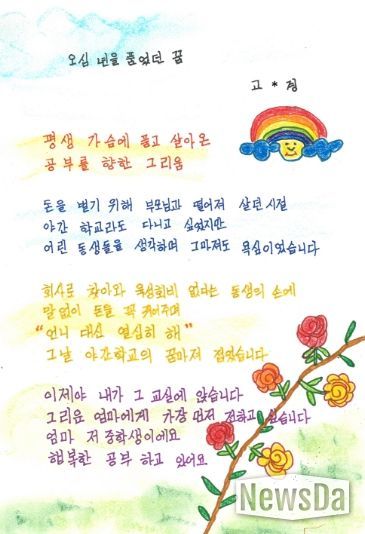 오십 년을 품었던 꿈
고 * 정
평생 가슴에 품고 살아온
공부를 향한 그리움
돈을 벌기 위해 부모님과 떨어져 살던 시절
야간 학교라도 다니고 싶었지만
어린 동생들을 생각하며 그마저도 욕심이었습니다
회사로 찾아와 육성회비 없다는 동생의 손에
말없이 돈을 꼭 쥐어주며
"언니 대신 열심히 해"
그날 야간학교의 꿈마저 접었습니다
이제야 내가 그 교실에 앉습니다
그리운 엄마에게 가장 먼저 전하고 싶습니다
엄마 저 중학생이에요
행복한 공부 하고 있어요
NewsDa